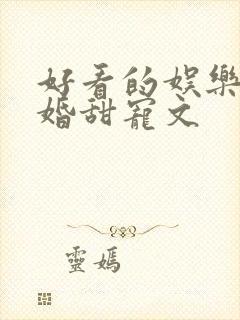 好看的娛樂
婚甜寵文
靈媽